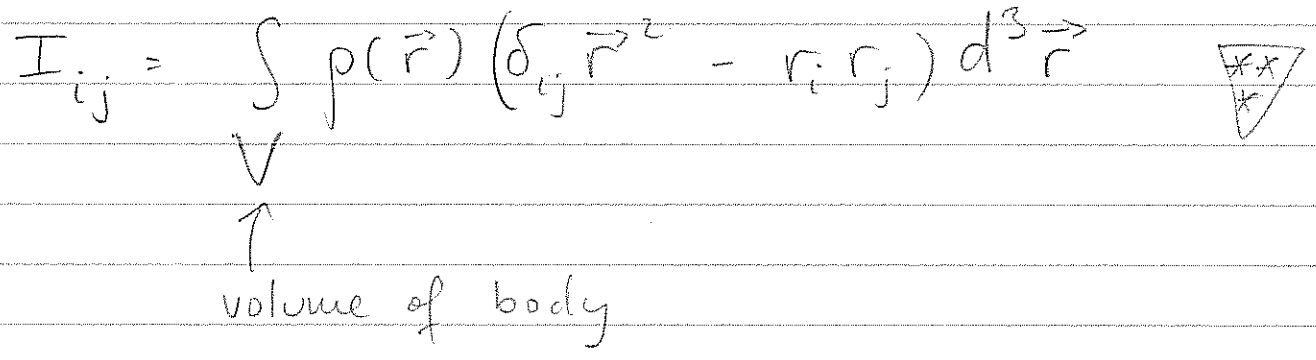 I_{ij} = ∫_V ρ(\vec{r}) (δ_{ij} \vec{r}^2 - r_i r_j) d^3\vec{r} ***
↑
volume of body